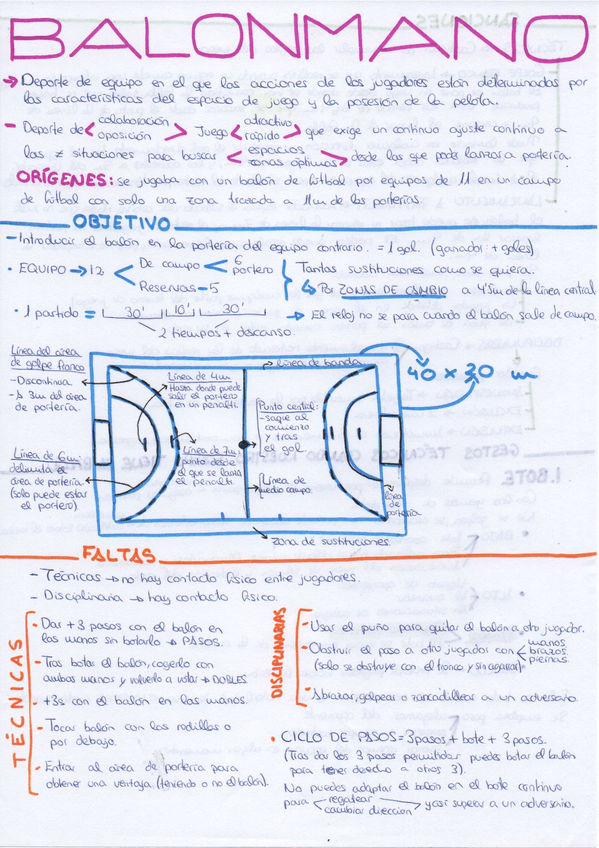 BALONMANO
→ Deporte de equipo en el que las acciones de los jugadores están determinadas por
las características del espacio de juego y la posesión de la pelota.
- Deporte de < colaboración oposición > Juego < atractivo rápido > que exige un continuo ajuste continuo a
las ≠ situaciones para buscar < espacios zonas óptimas > desde las que poder lanzar a portería.
ORÍGENES: se jugaba con un balón de fútbol por equipos de 11 en un campo
de fútbol con solo una zona trazada a 11m de las porterías.
OBJETIVO
- Introducir el balón en la portería del equipo contrario. = 1 gol. (ganador + goles)
· EQUIPO → 12 < De campo < 6 portero
Reservas - 5
Tantas sustituciones como se quiera.
↳ Por ZONAS DE CAMBIO a 4'5m de la línea central
· 1 partido = 30' 10' 30'
2 tiempos + descanso.
→ El reloj no se para cuando el balón sale de campo.
Línea del área
de golpe franco
- Discontinua.
- A 3m del área
de portería.
Línea de 6m:
delimita el
área de portería
(solo puede estar
el portero)
Línea de 4m
Hasta donde puede
salir el portero
en un penalti.
Línea de 7m:
punto desde
el que se lanza
el penalti.
línea de banda
Punto central:
- saque al
comienzo
y tras
el gol
Línea de
medio campo.
línea
de
portería
zona de sustituciones.
40 x 20 m
FALTAS
- Técnicas → no hay contacto físico entre jugadores.
- Disciplinaria → hay contacto físico.
TÉCNICAS
- Dar +3 pasos con el balón en
las manos sin botarlo → PASOS.
- Tras botar el balón, cogerlo con
ambas manos y volverlo a votar → DOBLES
- +3s con el balón en las manos.
- Tocar balón con las rodillas o
por debajo.
- Entrar al área de portería para
obtener una ventaja (teniendo o no el balón).
DISCIPLINARIAS
- Usar el puño para quitar el balón a otro jugador.
- Obstruir el paso a otro jugador con < manos. brazos. piernas.
(solo se obstruye con el tronco y sin agarrar)
- Abrazar, golpear o zancadillear a un adversario.
· CICLO DE PASOS = 3 pasos + bote + 3 pasos.
(Tras dar los 3 pasos permitidos puedes botar el balón
para tener derecho a otros 3).
No puedes adaptar el balón en el bote continuo
para < regatear cambiar dirección > y así superar a un adversario.